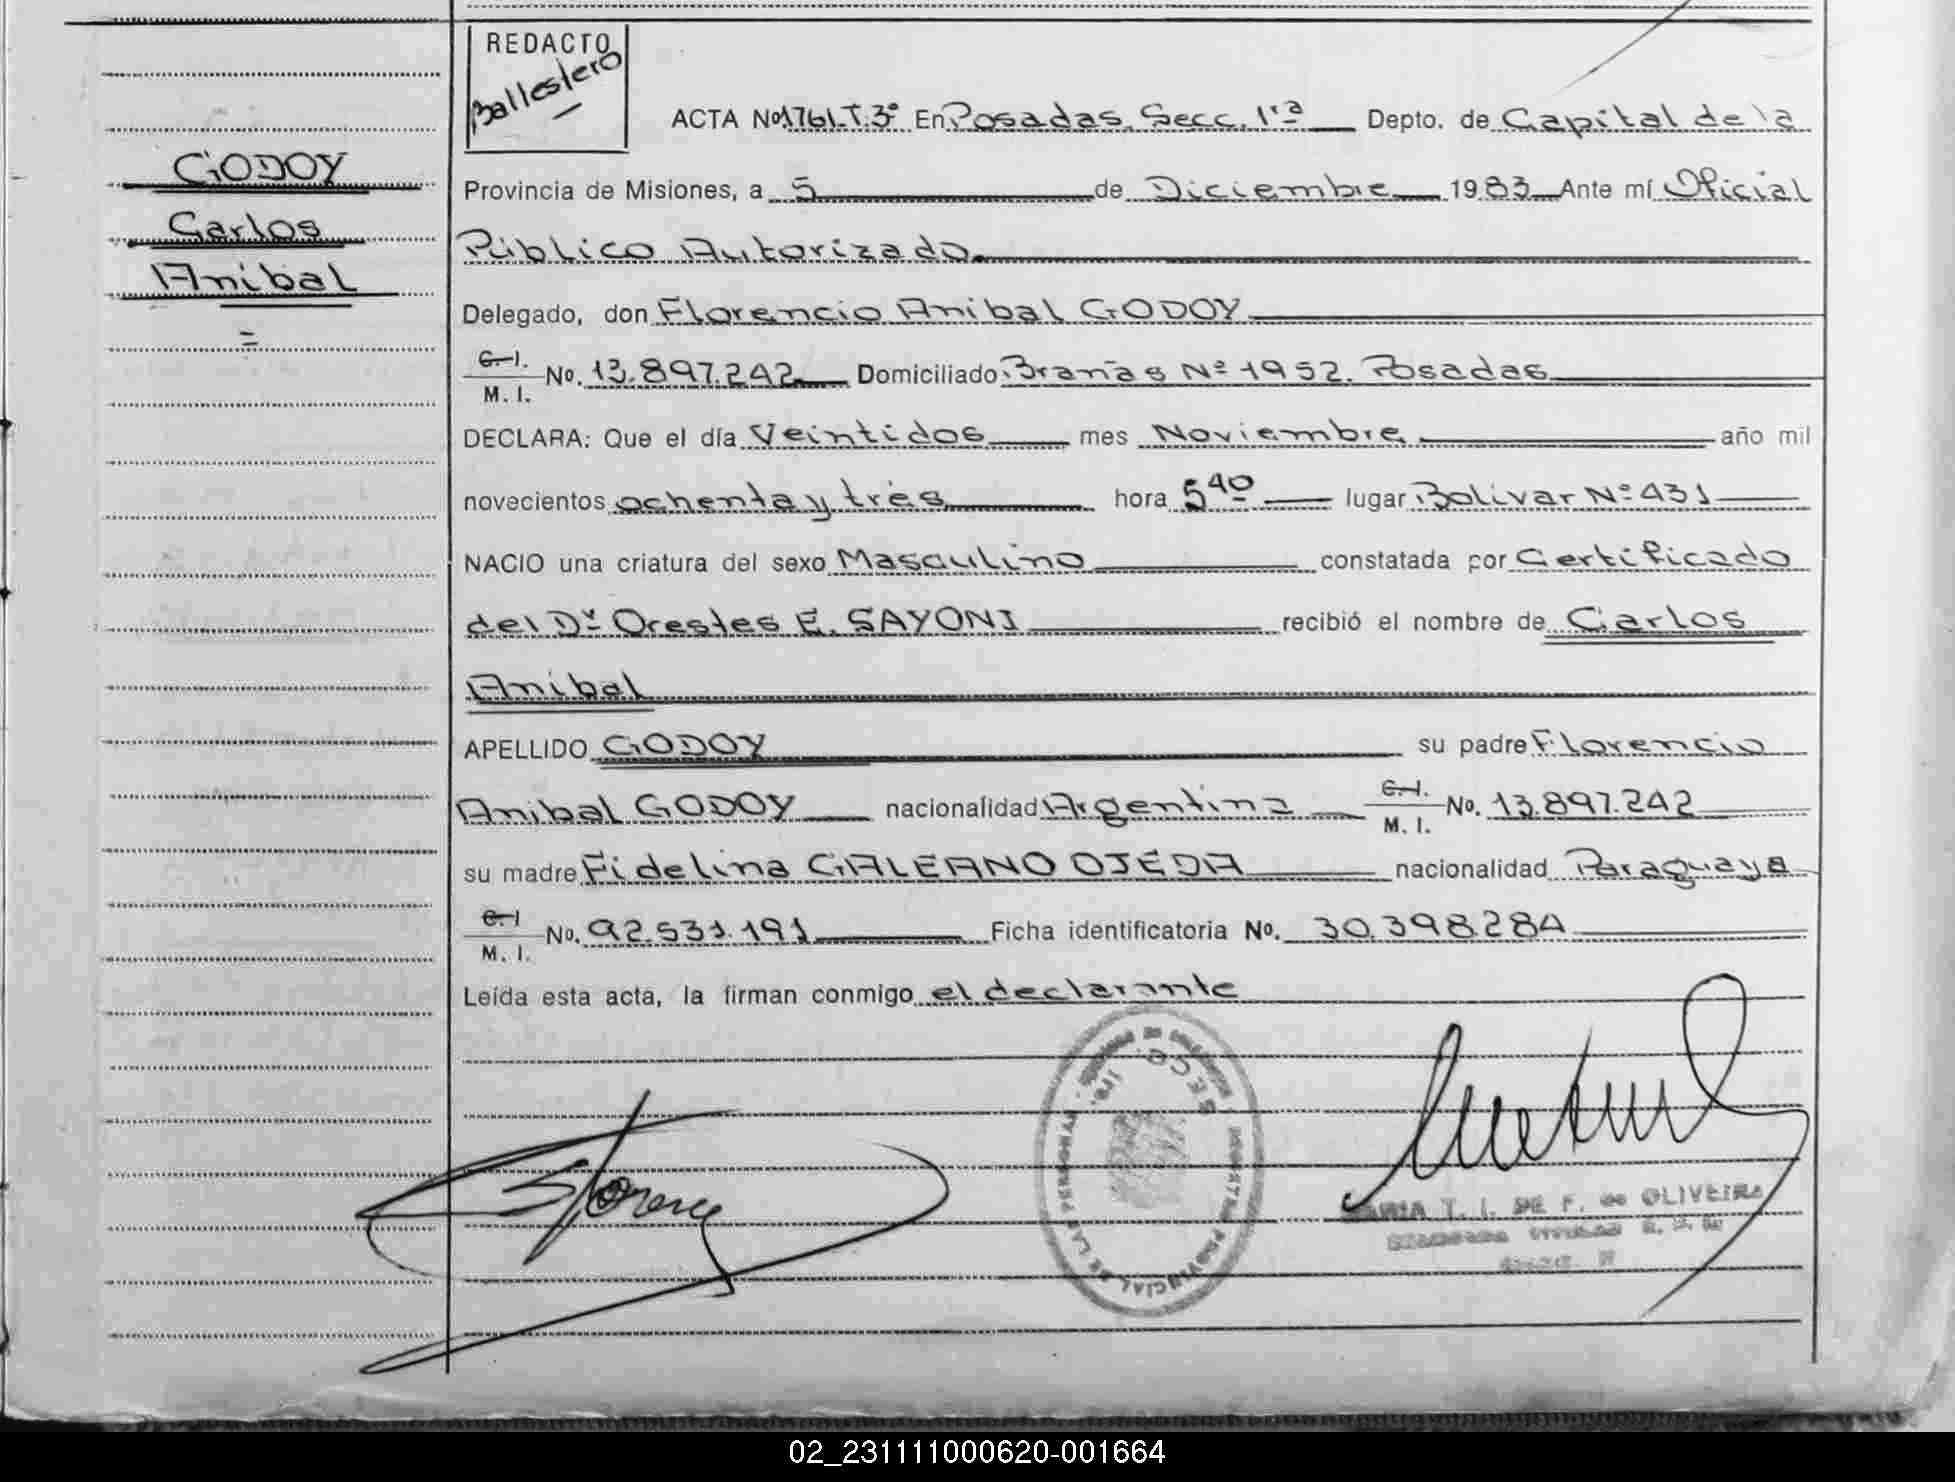 REDACTO
Ballestero
GODOY
Carlos
Anibal
=
ACTA No 1761-T.3º En Posadas, Secc. 1ra Depto. de Capital de la
Provincia de Misiones, a 5 de Diciembre 1983 Ante mí Oficial
Público Autorizado.
Delegado, don Florencio Anibal GODOY
C. I.
M. I. No. 13.897.242 Domiciliado Brañas Nº 1952. Posadas
DECLARA: Que el día Veintidos mes Noviembre año mil
novecientos ochenta y tres hora 5 40 lugar Bolívar Nº 431
NACIO una criatura del sexo Masculino constatada por Certificado
del Dr Orestes E. SAYONI recibió el nombre de Carlos
Anibal
APELLIDO GODOY su padre Florencio
Anibal GODOY nacionalidad Argentina C. I. M. I. No. 13.897.242
su madre Fidelina GALEANO OJEDA nacionalidad Paraguaya
C. I
M. I. No. 92.531.191 Ficha identificatoria No. 30.398.284
Leída esta acta, la firman conmigo el declarante
SECC. 1ra.
PROVINCIAL DE LAS PERSONAS
MARIA T. I. DE F. de OLIVEIRA
02_231111000620-001664